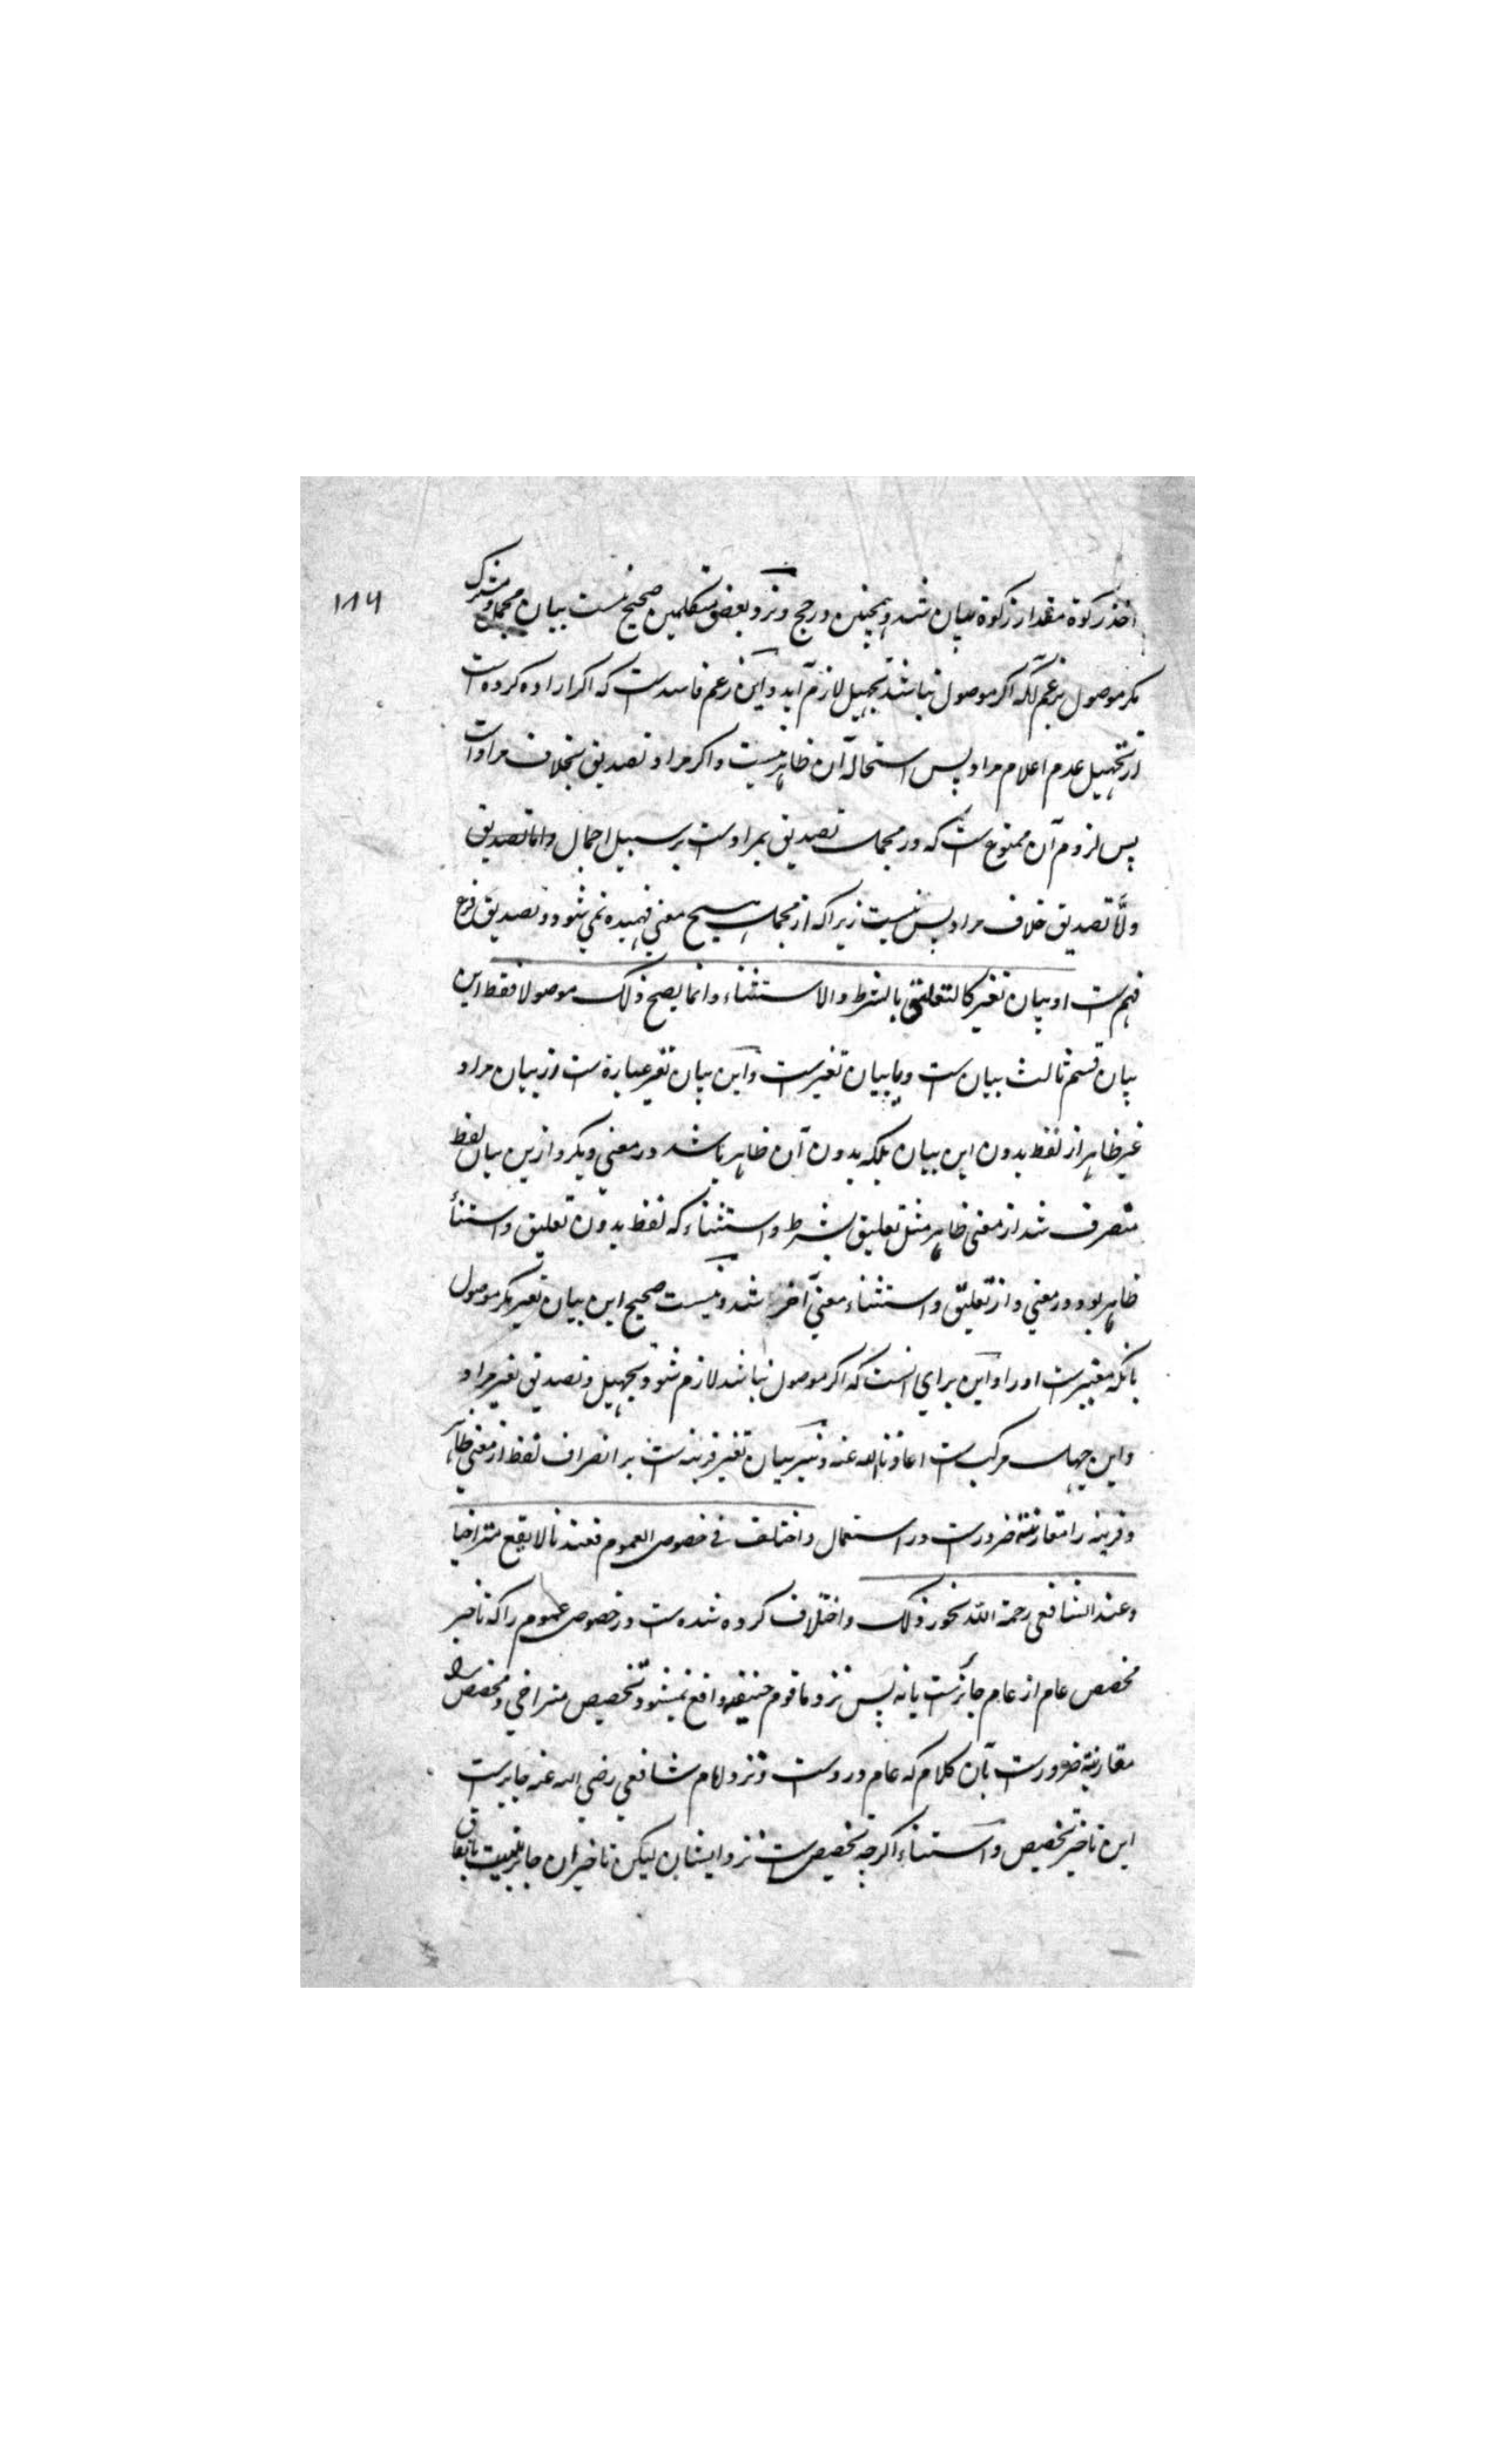 ۱۸۶
اخذ زکوة مقدار زکوة بیان شد و همچنین در حج و نزد بعض متکلمین صحیح نیست بیان مجمل و مشترک
مکر موصول بزعم آنکه اکر موصول نباشد تجهیل لازم آید و این زعم فاسدست که اکر اراده کرده است
از تجهیل عدم اعلام مراد پس استحاله آن ظاهر نیست و اکر مراد تصدیق بخلاف مرادست
پس لزوم آن ممنوع ست که در مجمل تصدیق بمرادست بر سبیل اجمال واما تصدیق
و لما تصدیق خلاف مراد پس نیست زیرا که از مجمل هیچ معنی فهمیده نمی شود و تصدیق فرع
فهم ست او بیان تغیر کالتعلیق بالشرط والاستثناء وانما یصح ذلک موصولا فقط این
بیان قسم ثالث بیان ست و یا بیان تغیرست و این بیان تغیر عبارة ست از بیان مراد
غیر ظاهر از لفظ بدون این بیان بلکه بدون آن ظاهر باشد در معنی دیکر و ازین بیان لفظ
منصرف شد از معنی ظاهر مثل تعلیق بشرط و استثناء که لفظ بدون تعلیق و استثنأ
ظاهر بود در معنی و از تعلیق و استثناء معنی آخر شد و نیست صحیح این بیان تغیر مکر موصول
بآنکه مغیرست او را و این برای انست که اکر موصول نباشد لازم شود تجهیل و تصدیق بغیر مراد
و این جهل مرکب ست اعاذنا الله عنه و نیز بیان تغیر قرینه ست بر انصراف لفظ از معنی ظاهر
و قرینه را مقارنة ضرورست در استعمال واختلف فی خصوص العموم فعندنا لا یقع متراخیا
وعند الشافعی رحمة الله یجوز ذلک و اختلاف کرده شده ست در خصوص عموم را که تاخیر
مخصص عام از عام جائزست یا نه پس نزد ما قوم حنیفه واقع نمیشود تخصیص متراخی و مخصص را
مقارنة ضرورست بآن کلام که عام دروست و نزد امام شافعی رضی الله عنه جایزست
این تاخیر تخصیص و استثناء اکرچه تخصیص ست نزد ایشان لیکن تاخیر ان جائز نیست باتفاق